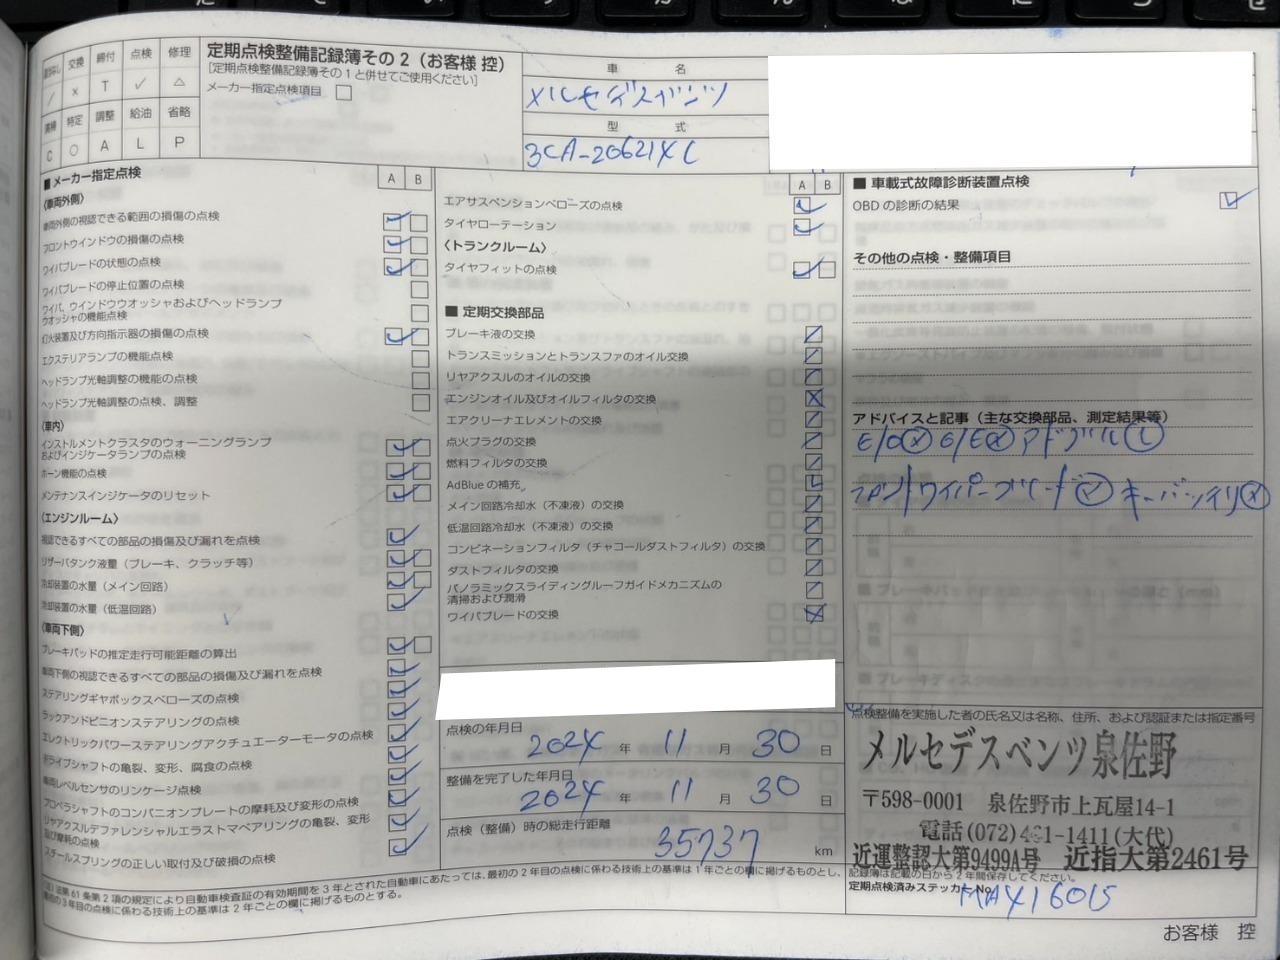 交換
締付
点検
修理
/
×
T
✓
△
特定
調整
給油
省略
C
O
A
L
P
定期点検整備記録簿その2（お客様 控）
[定期点検整備記録簿その1と併せてご使用ください]
メーカー指定点検項目
車 名
メルセデスベンツ
型 式
3CA-206214C
■ メーカー指定点検
A B
〈車両外側〉
車両外側の視認できる範囲の損傷の点検
フロントウインドウの損傷の点検
ワイパブレードの状態の点検
ワイパブレードの停止位置の点検
ワイパ、ウインドウウオッシャおよびヘッドランプ
ウオッシャの機能点検
灯火装置及び方向指示器の損傷の点検
エクステリアランプの機能点検
ヘッドランプ光軸調整の機能の点検
ヘッドランプ光軸調整の点検、調整
〈車内〉
インストルメントクラスタのウォーニングランプ
およびインジケータランプの点検
ホーン機能の点検
メンテナンスインジケータのリセット
〈エンジンルーム〉
視認できるすべての部品の損傷及び漏れを点検
リザーバタンク液量（ブレーキ、クラッチ等）
冷却装置の水量（メイン回路）
冷却装置の水量（低温回路）
〈車両下側〉
ブレーキパッドの推定走行可能距離の算出
車両下側の視認できるすべての部品の損傷及び漏れを点検
ステアリングギヤボックスベローズの点検
ラックアンドピニオンステアリングの点検
エレクトリックパワーステアリングアクチュエーターモータの点検
ドライブシャフトの亀裂、変形、腐食の点検
車両レベルセンサのリンケージ点検
プロペラシャフトのコンパニオンプレートの摩耗及び変形の点検
リヤアクスルデファレンシャルエラストマベアリングの亀裂、変形
及び摩耗の点検
スチールスプリングの正しい取付及び破損の点検
A B
エアサスペンションベローズの点検
タイヤローテーション
〈トランクルーム〉
タイヤフィットの点検
■ 定期交換部品
ブレーキ液の交換
トランスミッションとトランスファのオイル交換
リヤアクスルのオイルの交換
エンジンオイル及びオイルフィルタの交換
エアクリーナエレメントの交換
点火プラグの交換
燃料フィルタの交換
AdBlueの補充
メイン回路冷却水（不凍液）の交換
低温回路冷却水（不凍液）の交換
コンビネーションフィルタ（チャコールダストフィルタ）の交換
ダストフィルタの交換
パノラミックスライディングルーフガイドメカニズムの
清掃および潤滑
ワイパブレードの交換
点検の年月日
2024 年 11 月 30 日
整備を完了した年月日
2024 年 11 月 30 日
点検（整備）時の総走行距離
35737 km
■ 車載式故障診断装置点検
OBDの診断の結果
その他の点検・整備項目
アドバイスと記事（主な交換部品、測定結果等）
E/O ⓧ E/E ⓧ アドブルー Ⓛ
フロントワイパーブレード ⓧ キーバッテリ ⓧ
点検整備を実施した者の氏名又は名称、住所、および認証または指定番号
メルセデスベンツ泉佐野
〒598-0001 泉佐野市上瓦屋14-1
電話(072)461-1411(大代)
近運整認大第9499A号 近指大第2461号
記録簿は記載の日から2年間保存してください。
定期点検済みステッカーNo.
MAY16015
(注) 法第61条第2項の規定により自動車検査証の有効期間を3年とされた自動車にあたっては、最初の2年目の点検に係わる技術上の基準は1年ごとの欄に掲げるものとし、
最初の3年目の点検に係わる技術上の基準は2年ごとの欄に掲げるものとする。
お客様 控